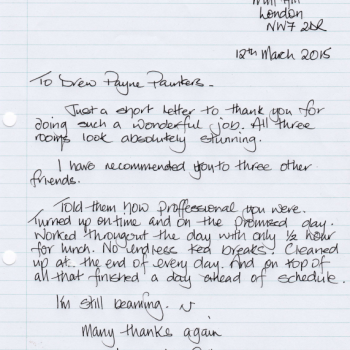 Mill Hill
London
NW7 2DR
12th March 2015
To Drew Payne Painters.
Just a short letter to thank you for
doing such a wonderful job. All three
rooms look absolutely stunning.
I have recommended you to three other
friends.
Told them how proffessional you were.
Turned up on time and on the promised day.
Worked throughout the day with only ½ hour
for lunch. No endless tea breaks. Cleaned
up at the end of every day. And on top of
all that finished a day ahead of schedule.
I'm still beaming.
Many thanks again